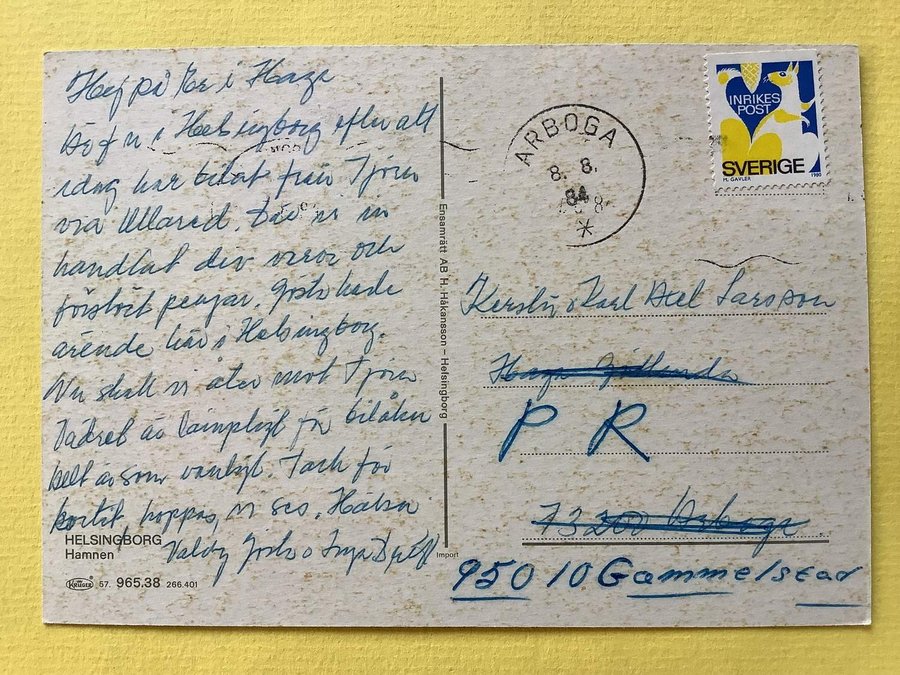 Hej på Er i Haga
i Helsingborg efter att
idag har bilat från Tjörn
via Ullared. Där vi
handlat div varor och
förstört pengar. Gösta hade
ärende här i Helsingborg.
Nu skall vi åter mot Tjörn
Vädret är lämpligt för bilåkn
helt as som vanligt. Tack för
kortet, hoppas vi ses. Hälsn
Valdy Gösta o Inga
HELSINGBORG
Hamnen
KRÜGER 57. 965.38 266.401
Ensamrätt AB H. Håkansson – Helsingborg
Import
ARBOGA
8. 8.
84
*
INRIKES
POST
SVERIGE
M. GAVLER 1980
Kerstin o Karl Axel Larsson
Haga Götlunda
P R
73200 Arboga
95010 Gammelstad